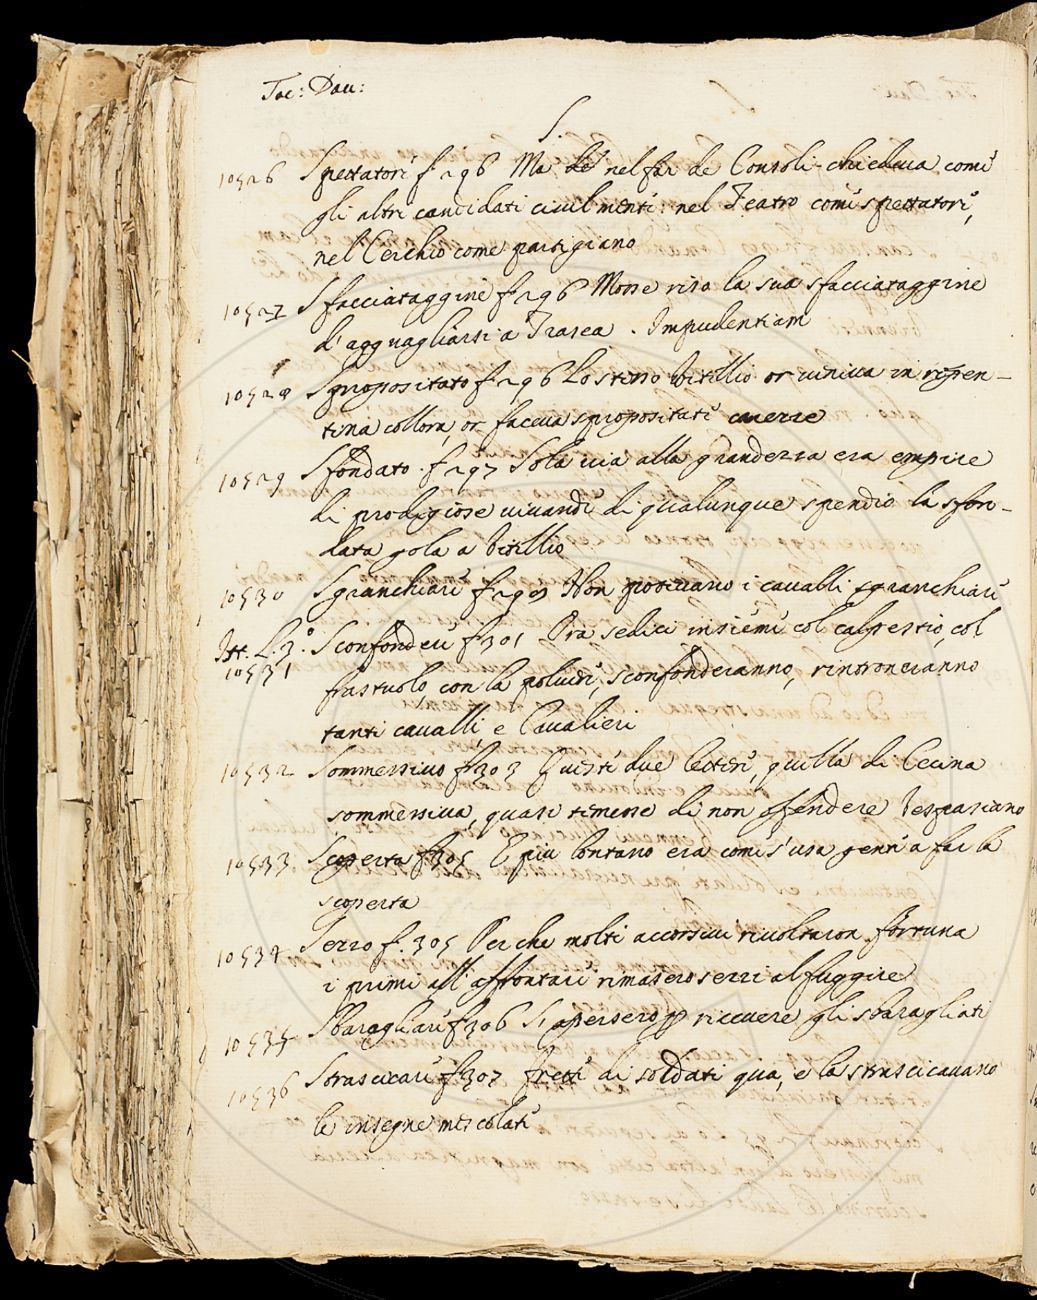 Tac: Dau:
S.
10526 Spettatori f 296 Ma nel far de Consoli chiedeua come
gli altri candidati ciuilmente: nel Teatro come spettatore,
nel Cerchio come partigiano
10527 Sfacciataggine f 296 Mosse riso la sua sfacciataggine
d'agguagliarsi a Trasea. Impudentiam
10528 Spropositato f 296 Lo stesso Vitellio or ueniua in repen-
tina collora, or faceua spropositate carezze
10529 Sfondato. f 297 Sola uia alla grandezza era empire
di prodigiose uiuande di qualunque spendio la sfon-
data gola a Vitellio
10530 Sgranchiare f 299 Non poteuano i caualli sgranchiare
Ist. L. 3.° Sconfondere f 301 Ora sedici insieme col calpestio, col
10531 frastuolo, con la poluere, sconfonderanno, rintroneranno
tanti caualli, e Caualieri
10532 Sommessiuo f 303 Queste due lettere, quella di Cecina
sommessiua, quasi temesse di non offendere Vespasiano
10533 Scoperta f 305 E più lontano era come s'usa gente a far la
scoperta
10534 Serro f. 305 Perche molti accorsiui riuoltaron fortuna
i primi all'affrontare rimasero serri al fuggire
10535 Sbaragliare f 306 S'apersero p riceuere gli sbaragliati
10536 Strascicare f 307 frette di soldati qua, e la strascicauano
le insegne mescolate